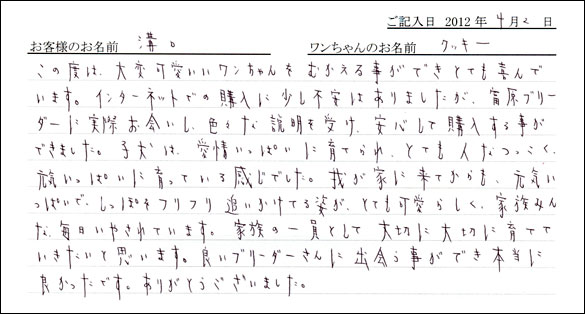 ご記入日 2012年 4月2日
お客様のお名前 溝口 ワンちゃんのお名前 クッキー
この度は、大変可愛いいワンちゃんをむかえる事ができとても喜んで
います。インターネットでの購入に少し不安はありましたが、富原ブリー
ダーに実際お会いし、色々な説明を受け、安心して購入する事が
できました。子犬は、愛情いっぱいに育てられ、とても人なつっこく、
元気いっぱいに育っている感じでした。我が家に来てからも、元気い
っぱいで、しっぽをフリフリ追いかけてる姿が、とても可愛らしく、家族みん
な、毎日いやされています。家族の一員として大切に大切に育てて
いきたいと思います。良いブリーダーさんに出会う事ができ本当に
良かったです。ありがとうございました。